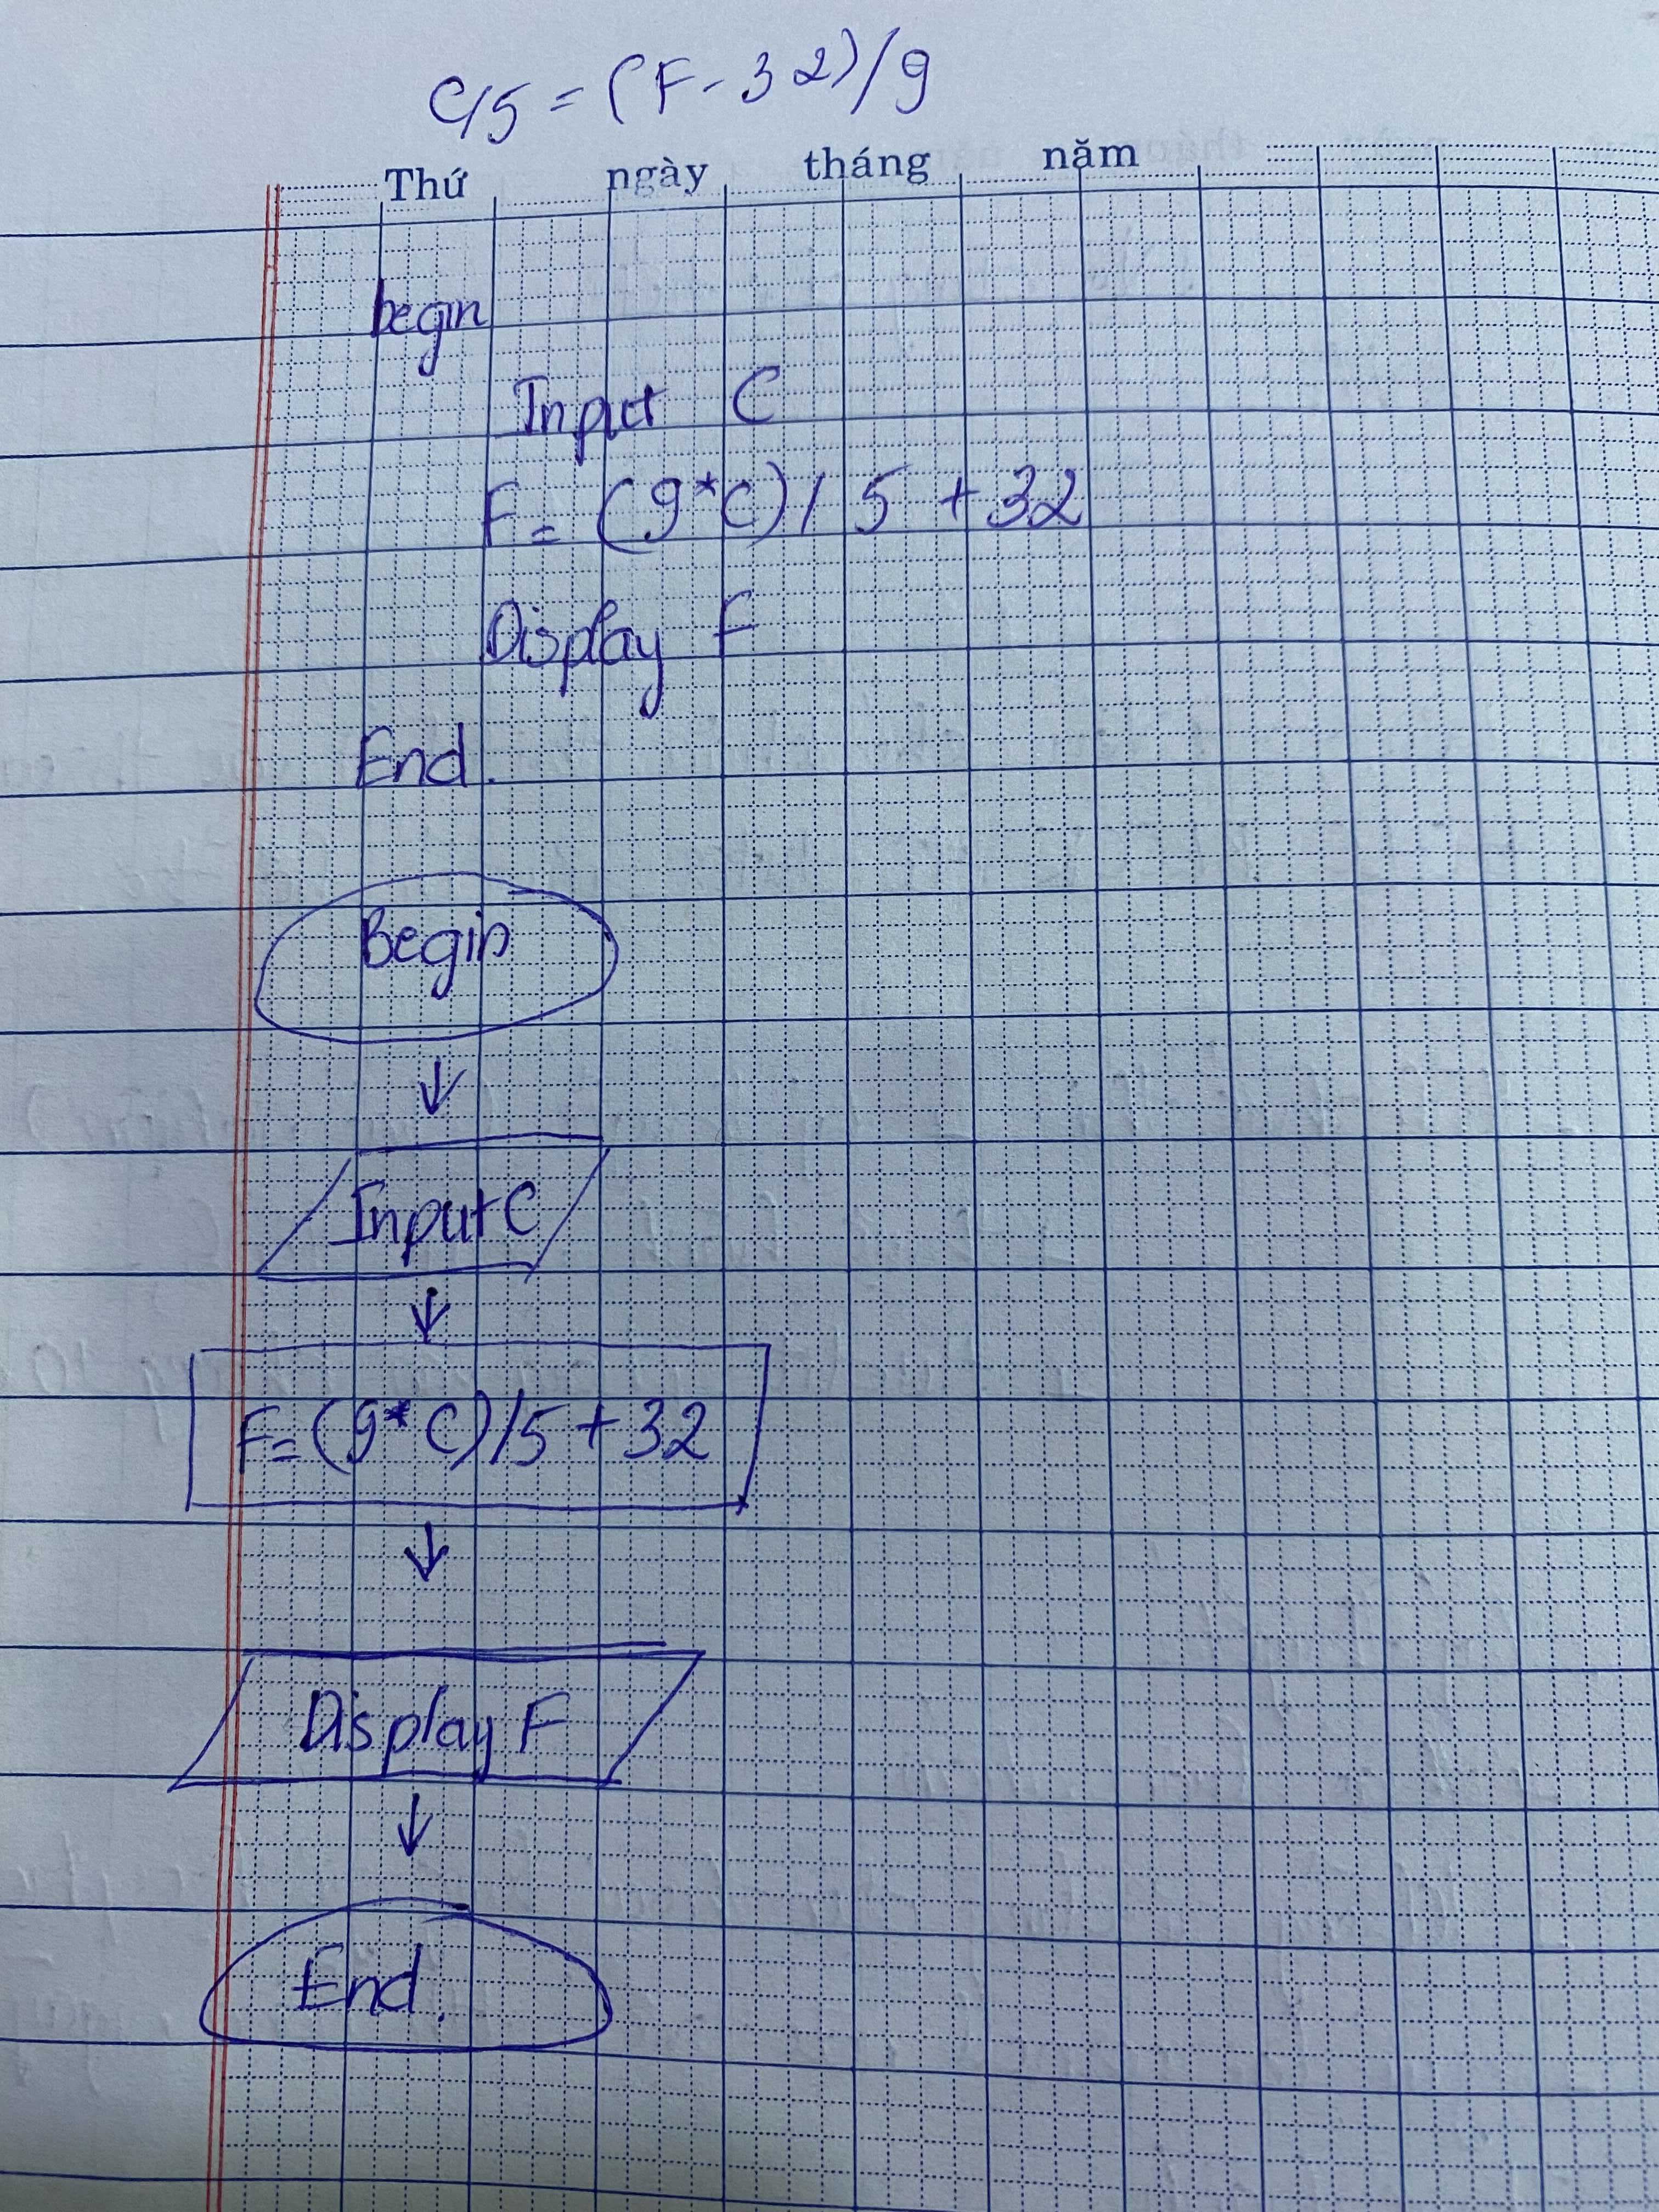 C/5 = (F - 32)/9
Thứ ngày tháng năm
begin
Input C
F = (9*C) / 5 + 32
Display F
End.
Begin
Input C
F = (9* C) / 5 + 32
Display F
End.